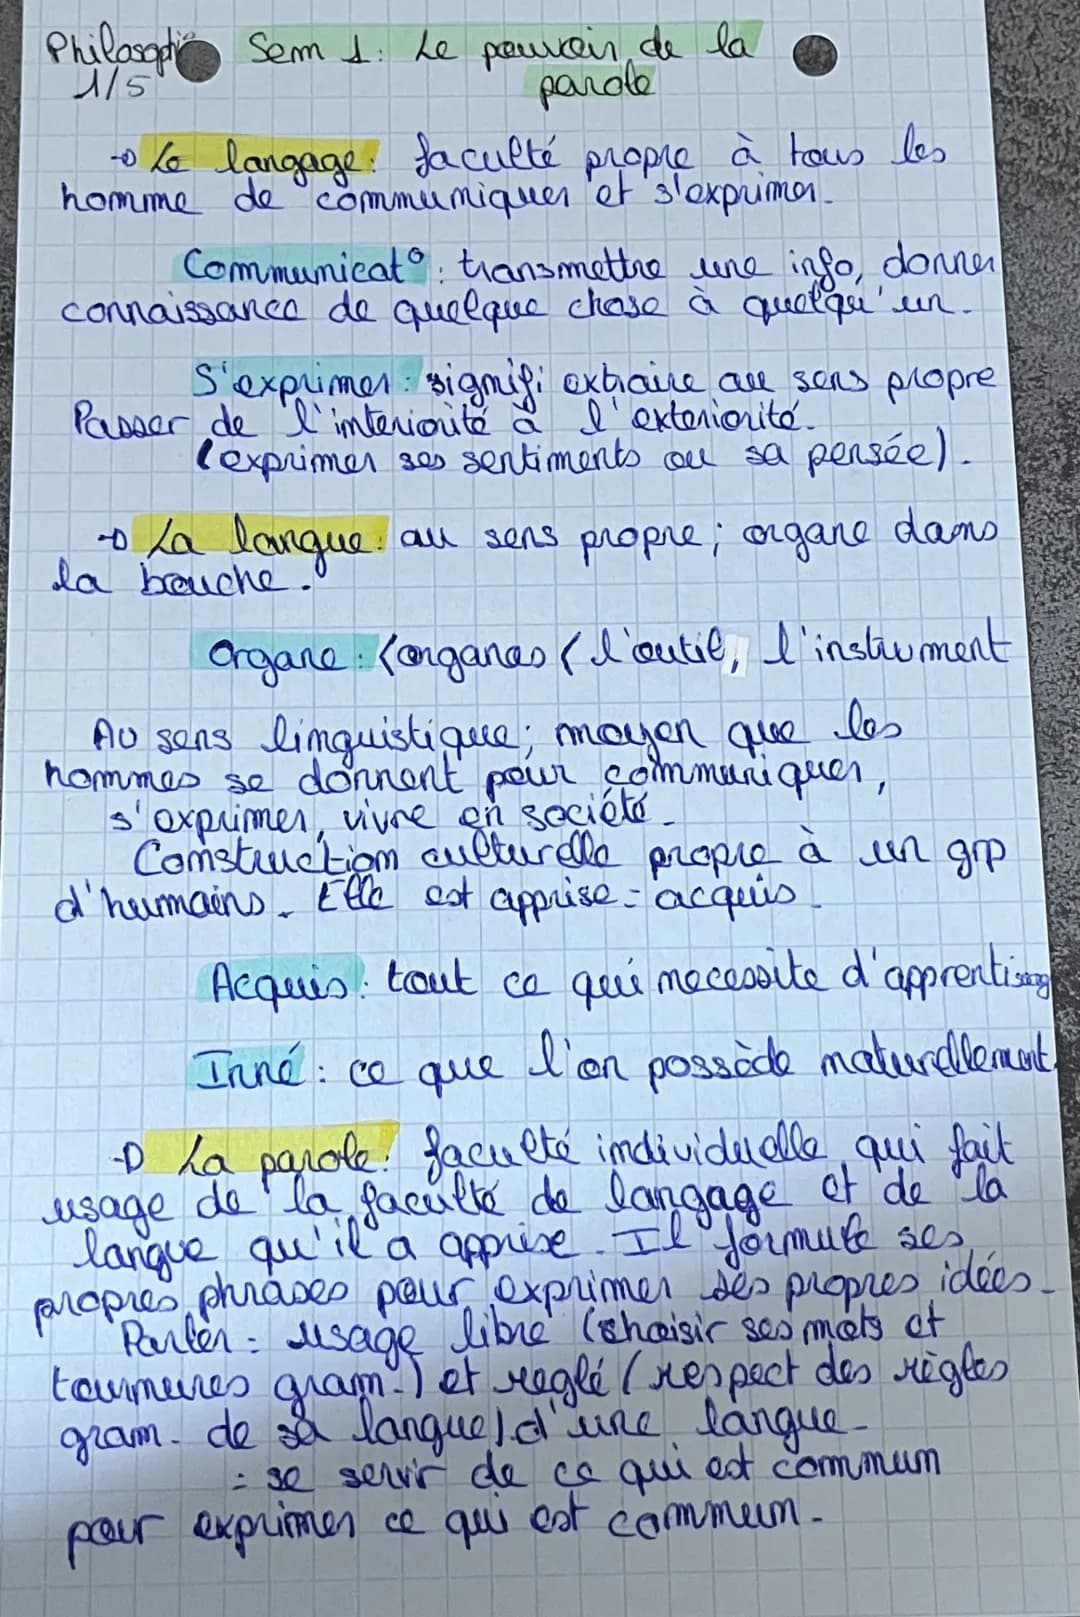 Philosophie Sem 1: Le pouvoir de la
1/5 parole
→ Le langage: faculté propre à tous les
homme de communiquer et s'exprimer.
Communicat°: transmettre une info, donner
connaissance de quelque chose à quelqu'un.
S'exprimer: signifi extraire au sens propre
Passer de l'interiorité à l'exteriorité.
(exprimer ses sentiments ou sa pensée).
→ La langue: au sens propre; organe dans
la bouche.
Organe: <organes ( l'outil, l'instrument
Au sens linguistique; moyen que les
hommes se donnent pour communiquer,
s'exprimer, vivre en société.
Construction culturelle propre à un grp
d'humains. Elle est apprise = acquis.
Acquis: tout ce qui necessite d'apprentissag
Inné: ce que l'on possède naturellement.
→ La parole: faculté individuelle qui fait
usage de la faculté de langage et de la
langue qu'il a apprise. Il formule ses
propres phrases pour exprimer ses propres idées.
Parler = usage libre (choisir ses mots et
tournures gram.) et reglé (respect des règles
gram. de sa langue) d'une langue.
= se servir de ce qui est commun
pour exprimer ce qui est commun.